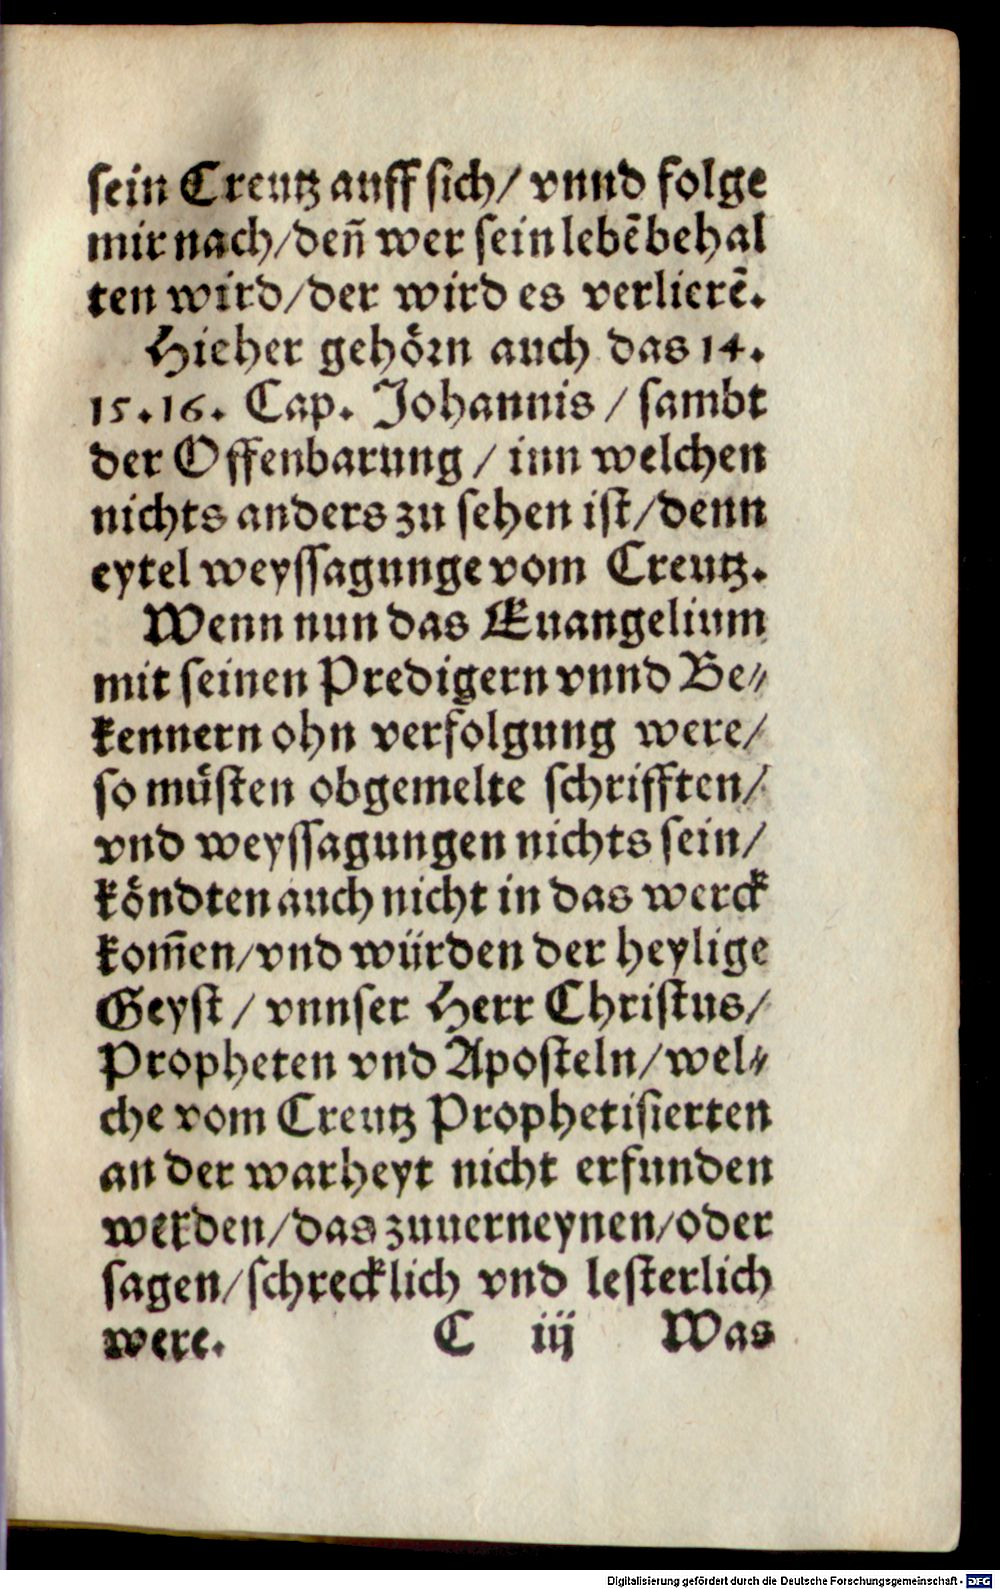 sein Creutz auff sich/ vnnd folge
mir nach/deñ wer sein lebẽ behal
ten wird/der wird es verlierẽ.
Hieher gehörn auch das 14.
15.16. Cap. Johannis / sambt
der Offenbarung / inn welchen
nichts anders zu sehen ist/denn
eytel weyssagunge vom Creutz.
Wenn nun das Euangelium
mit seinen Predigern vnnd Be⸗
kennern ohn verfolgung were/
so müsten obgemelte schrifften/
vnd weyssagungen nichts sein/
köndten auch nicht in das werck
kom̃en/vnd würden der heylige
Geyst / vnnser Herr Christus/
Propheten vnd Aposteln/wel⸗
che vom Creutz Prophetisierten
an der warheyt nicht erfunden
werden/das zuuerneynen/oder
sagen/schrecklich vnd lesterlich
were. C iij Was
Digitalisierung gefördert durch die Deutsche Forschungsgemeinschaft - DFG